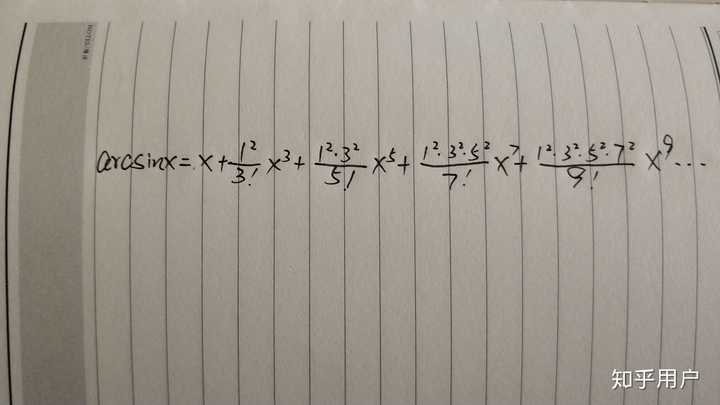 arcsinx = x + 1²/3! x³ + 1²·3²/5! x⁵ + 1²·3²·5²/7! x⁷ + 1²·3²·5²·7²/9! x⁹ ...
知乎用户